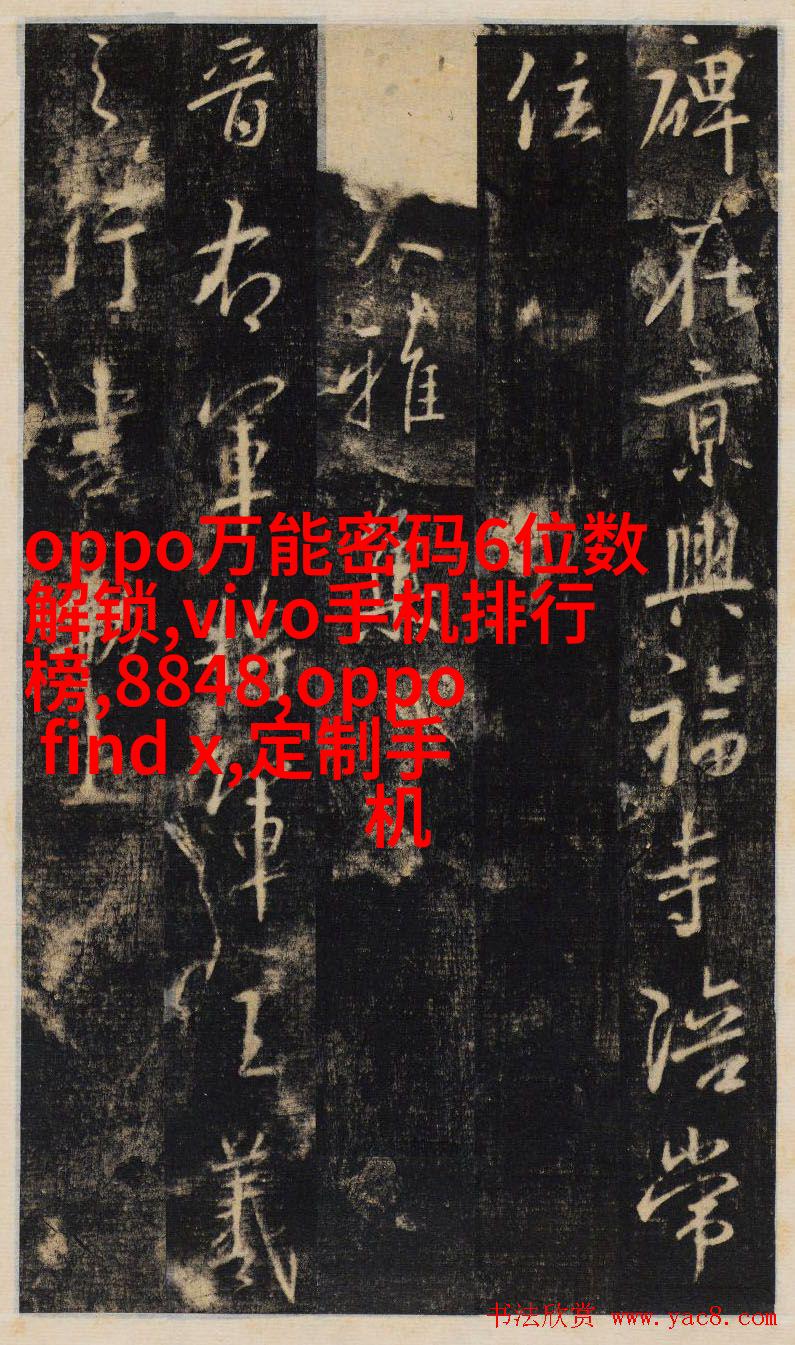 碑在京興福寺陪常
住
大雅集
晉右軍將軍王羲
之行書勒上
oppo万能密码6位数
解锁,vivo手机排行
榜,8848,oppo
find x,定制手
机
书法欣赏 www.yac8.com